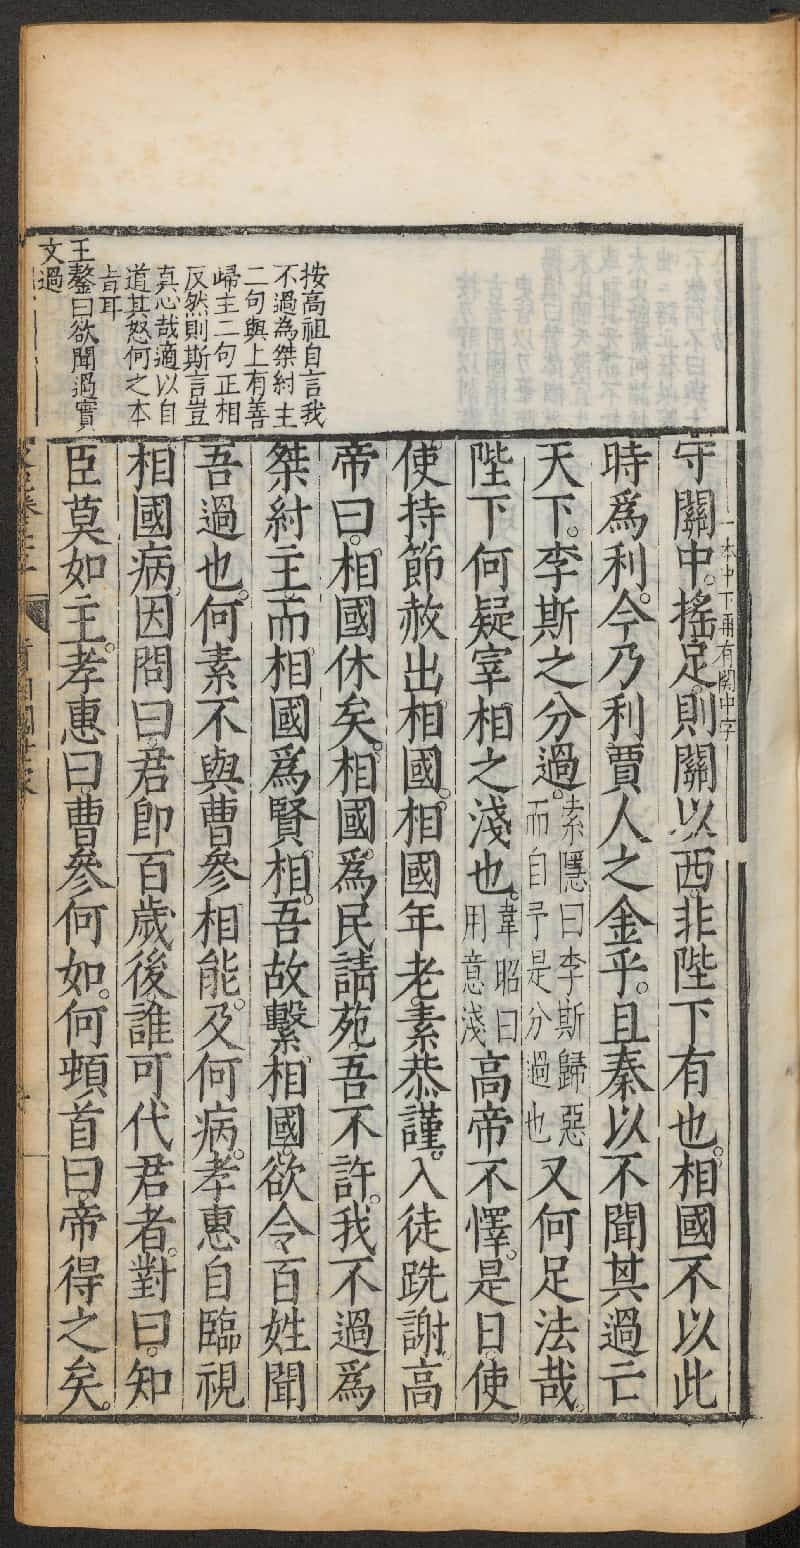 按高祖自言我
不過為桀紂主
二句與上有善
歸主二句正相
反然則斯言豈
真心哉適以自
道其怒何之本
旨耳
王鏊曰欲聞過實
文過
一本中下再有關中字
守關中。搖足則關以西非陛下有也。相國不以此
時爲利。今乃利賈人之金乎。且秦以不聞其過亡
天下。李斯之分過。
索隱曰李斯歸惡
而自予是分過也
又何足法哉。
陛下何疑宰相之淺也。
韋昭曰
用意淺
高帝不懌。是日使
使持節赦出相國。相國年老。素恭謹。入徒跣謝。高
帝曰。相國休矣。相國爲民請苑。吾不許。我不過爲
桀紂主而相國爲賢相。吾故繫相國。欲令百姓聞
吾過也。何素不與曹參相能。及何病。孝惠自臨視
相國病。因問曰君卽百歲後。誰可代君者。對曰。知
臣莫如主。孝惠曰曹參何如。何頓首曰帝得之矣。